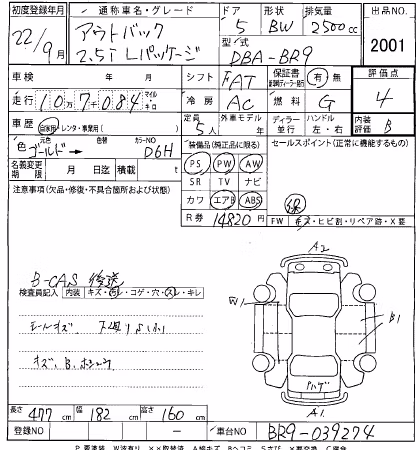 初度登録年月 通称車名・グレード ドア 形状 排気量 出品NO.
22/9月 アウトバック 2.5i Lパッケージ 5 BW 2500cc 2001
型式 DBA-BR9
車検 年 月 シフト FAT 保証書 有・無 評価点
走行 10万7084 マイル キロ 冷房 AC 燃料 G 4
車歴 自家用・レンタ・事業用( ) 定員 5人 外車モデル 年 ディーラー 並行 ハンドル 左・右 内装評価 B
色 元色 ゴールド 色替 カラーNO D6H 装備品(純正品に限る) セールスポイント(正常に機能するもの)
名義変更期限 月 日迄 月 日 PS PW AW
注意事項(欠品・修復・不具合箇所および状態) SR TV ナビ
カワ エアB ABS
R券 14820円 FW キズ・ヒビ割・リペア跡・X要
B-CAS 後送
検査員記入 内装 キズ・汚・コゲ・穴・スレ・キレ
A2
W1
B1
キズ、B、
ハゲ
A1
長さ 477cm 幅 182cm 高さ 160cm
登録NO － 車台NO BR9-039274